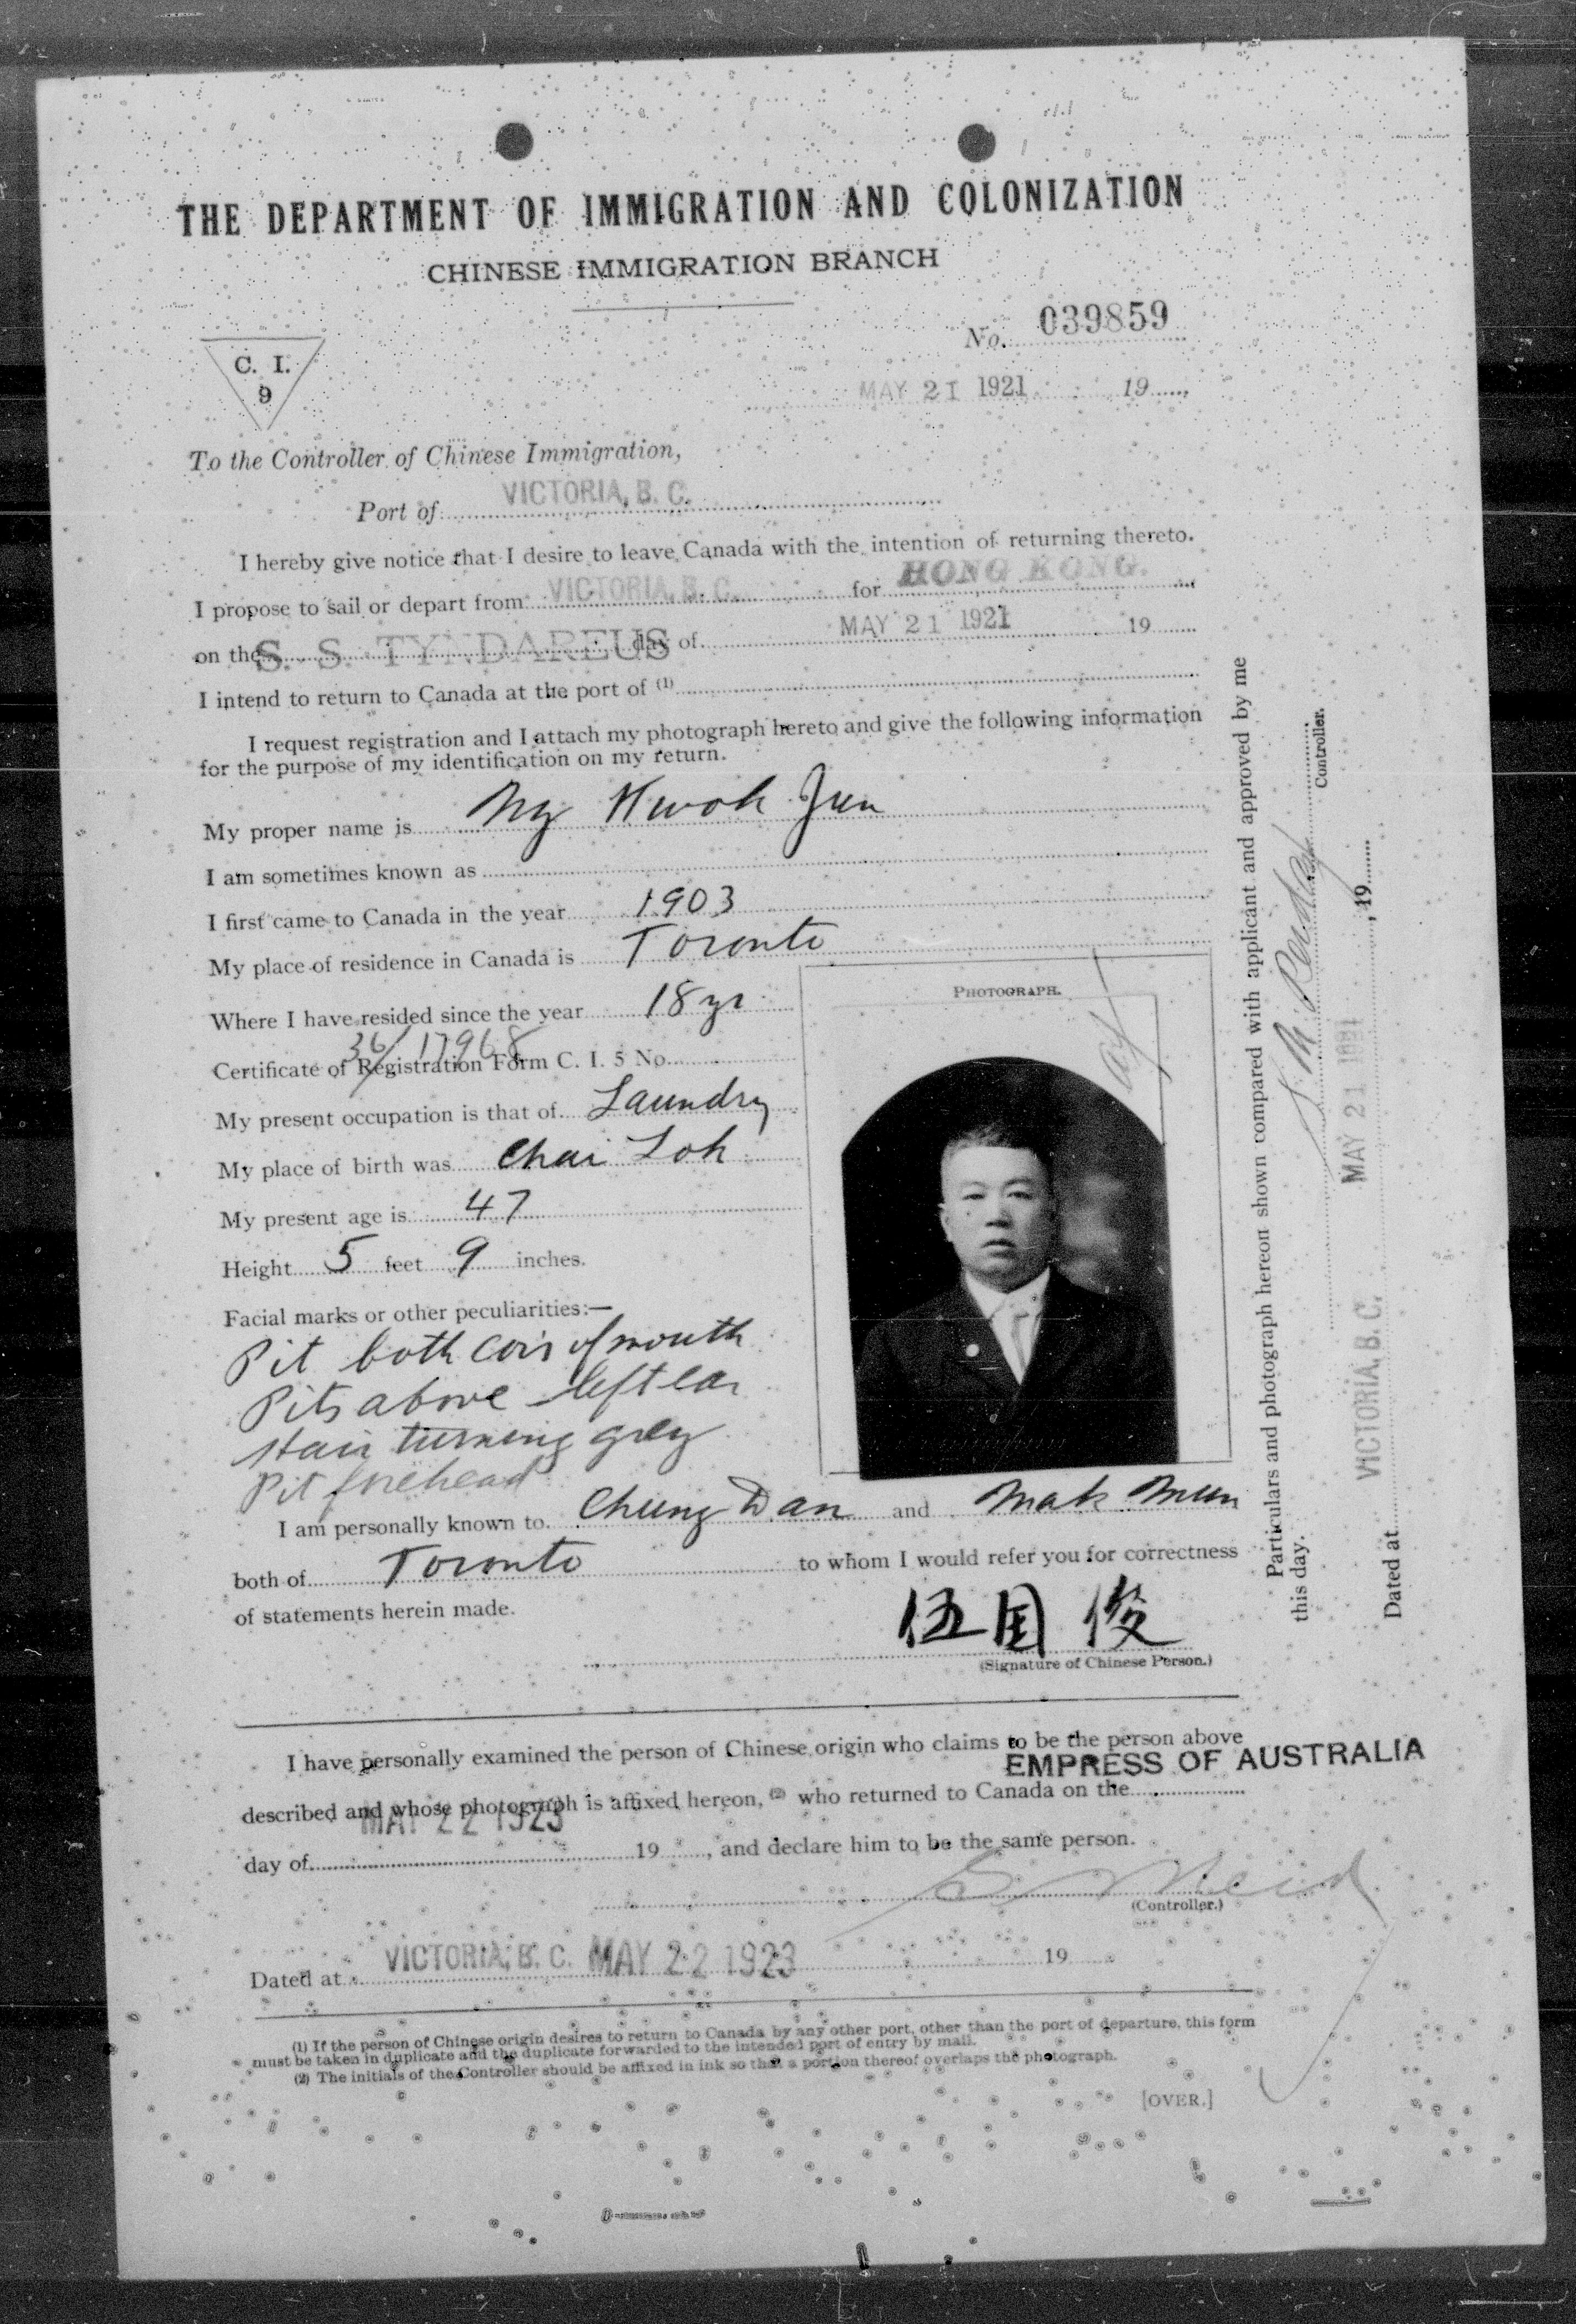 THE DEPARTMENT OF IMMIGRATION AND COLONIZATION
CHINESE IMMIGRATION BRANCH
No. 039859
C. I.
9
MAY 21 1921 19
To the Controller of Chinese Immigration,
Port of VICTORIA, B. C.
I hereby give notice that I desire to leave Canada with the intention of returning thereto.
I propose to sail or depart from VICTORIA, B. C. for HONG KONG.
on the S. S. TYNDAREUS day of MAY 21 1921 19
I intend to return to Canada at the port of (1)
I request registration and I attach my photograph hereto and give the following information
for the purpose of my identification on my return.
My proper name is Ng Kwok Jun
I am sometimes known as
I first came to Canada in the year 1903
My place of residence in Canada is Toronto
Where I have resided since the year 18 yr
Certificate of Registration Form C. I. 5 No. 36/17968
My present occupation is that of Laundry
My place of birth was Chai Loh
My present age is 47
Height 5 feet 9 inches.
Facial marks or other peculiarities:—
Pit both cors of mouth
Pits above left ear
Hair turning grey
Pit forehead
PHOTOGRAPH.
I am personally known to Chung Dan and Mak Mun
both of Toronto to whom I would refer you for correctness
of statements herein made.
伍国俊
(Signature of Chinese Person.)
Particulars and photograph hereon shown compared with applicant and approved by me
this day.
Controller.
Dated at VICTORIA, B. C. MAY 21 1921, 19
I have personally examined the person of Chinese origin who claims to be the person above
EMPRESS OF AUSTRALIA
described and whose photograph is affixed hereon, (2) who returned to Canada on the
MAY 22 1923
day of 19 , and declare him to be the same person.
(Controller.)
Dated at VICTORIA, B. C. MAY 22 1923 19
(1) If the person of Chinese origin desires to return to Canada by any other port, other than the port of departure, this form
must be taken in duplicate and the duplicate forwarded to the intended port of entry by mail.
(2) The initials of the Controller should be affixed in ink so that a portion thereof overlaps the photograph.
[OVER.]